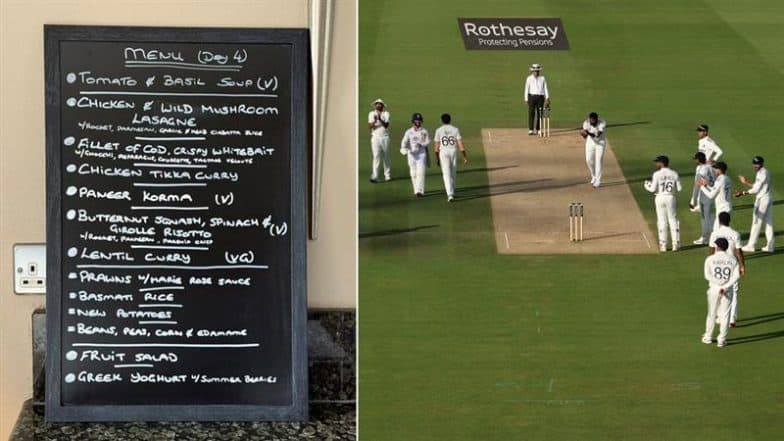 MENU (Day 4)
TOMATO & BASIL SOUP (V)
CHICKEN & WILD MUSHROOM
LASAGNE
W/ROCKET, PARMESAN, GARLIC & HERB CIABATTA SLICE
FILLET OF COD, CRISPY WHITEBAIT
W/GNOCCHI, ASPARAGUS, COURGETTE, TARTARE VELOUTE
CHICKEN TIKKA CURRY
PANEER KORMA (V)
BUTTERNUT SQUASH, SPINACH &
GIROLLE RISOTTO (V)
W/ROCKET, PARMESAN, PARSNIP CRISP
LENTIL CURRY (VG)
PRAWNS W/MARIE ROSE SAUCE
BASMATI RICE
NEW POTATOES
BEANS, PEAS, CORN & EDAMAME
FRUIT SALAD
GREEK YOGHURT W/SUMMER BERRIES
Rothesay
Protecting Pensions
66
16
89